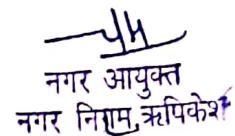 नगर आयुक्त
नगर निगम, ऋषिकेश